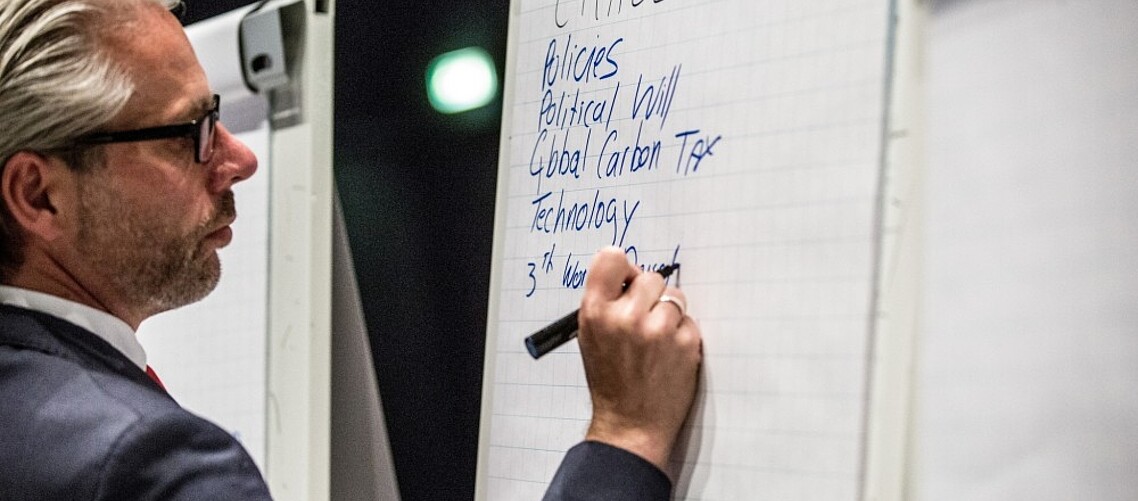 Policies
Political Will
Global Carbon Tax
Technology
3th